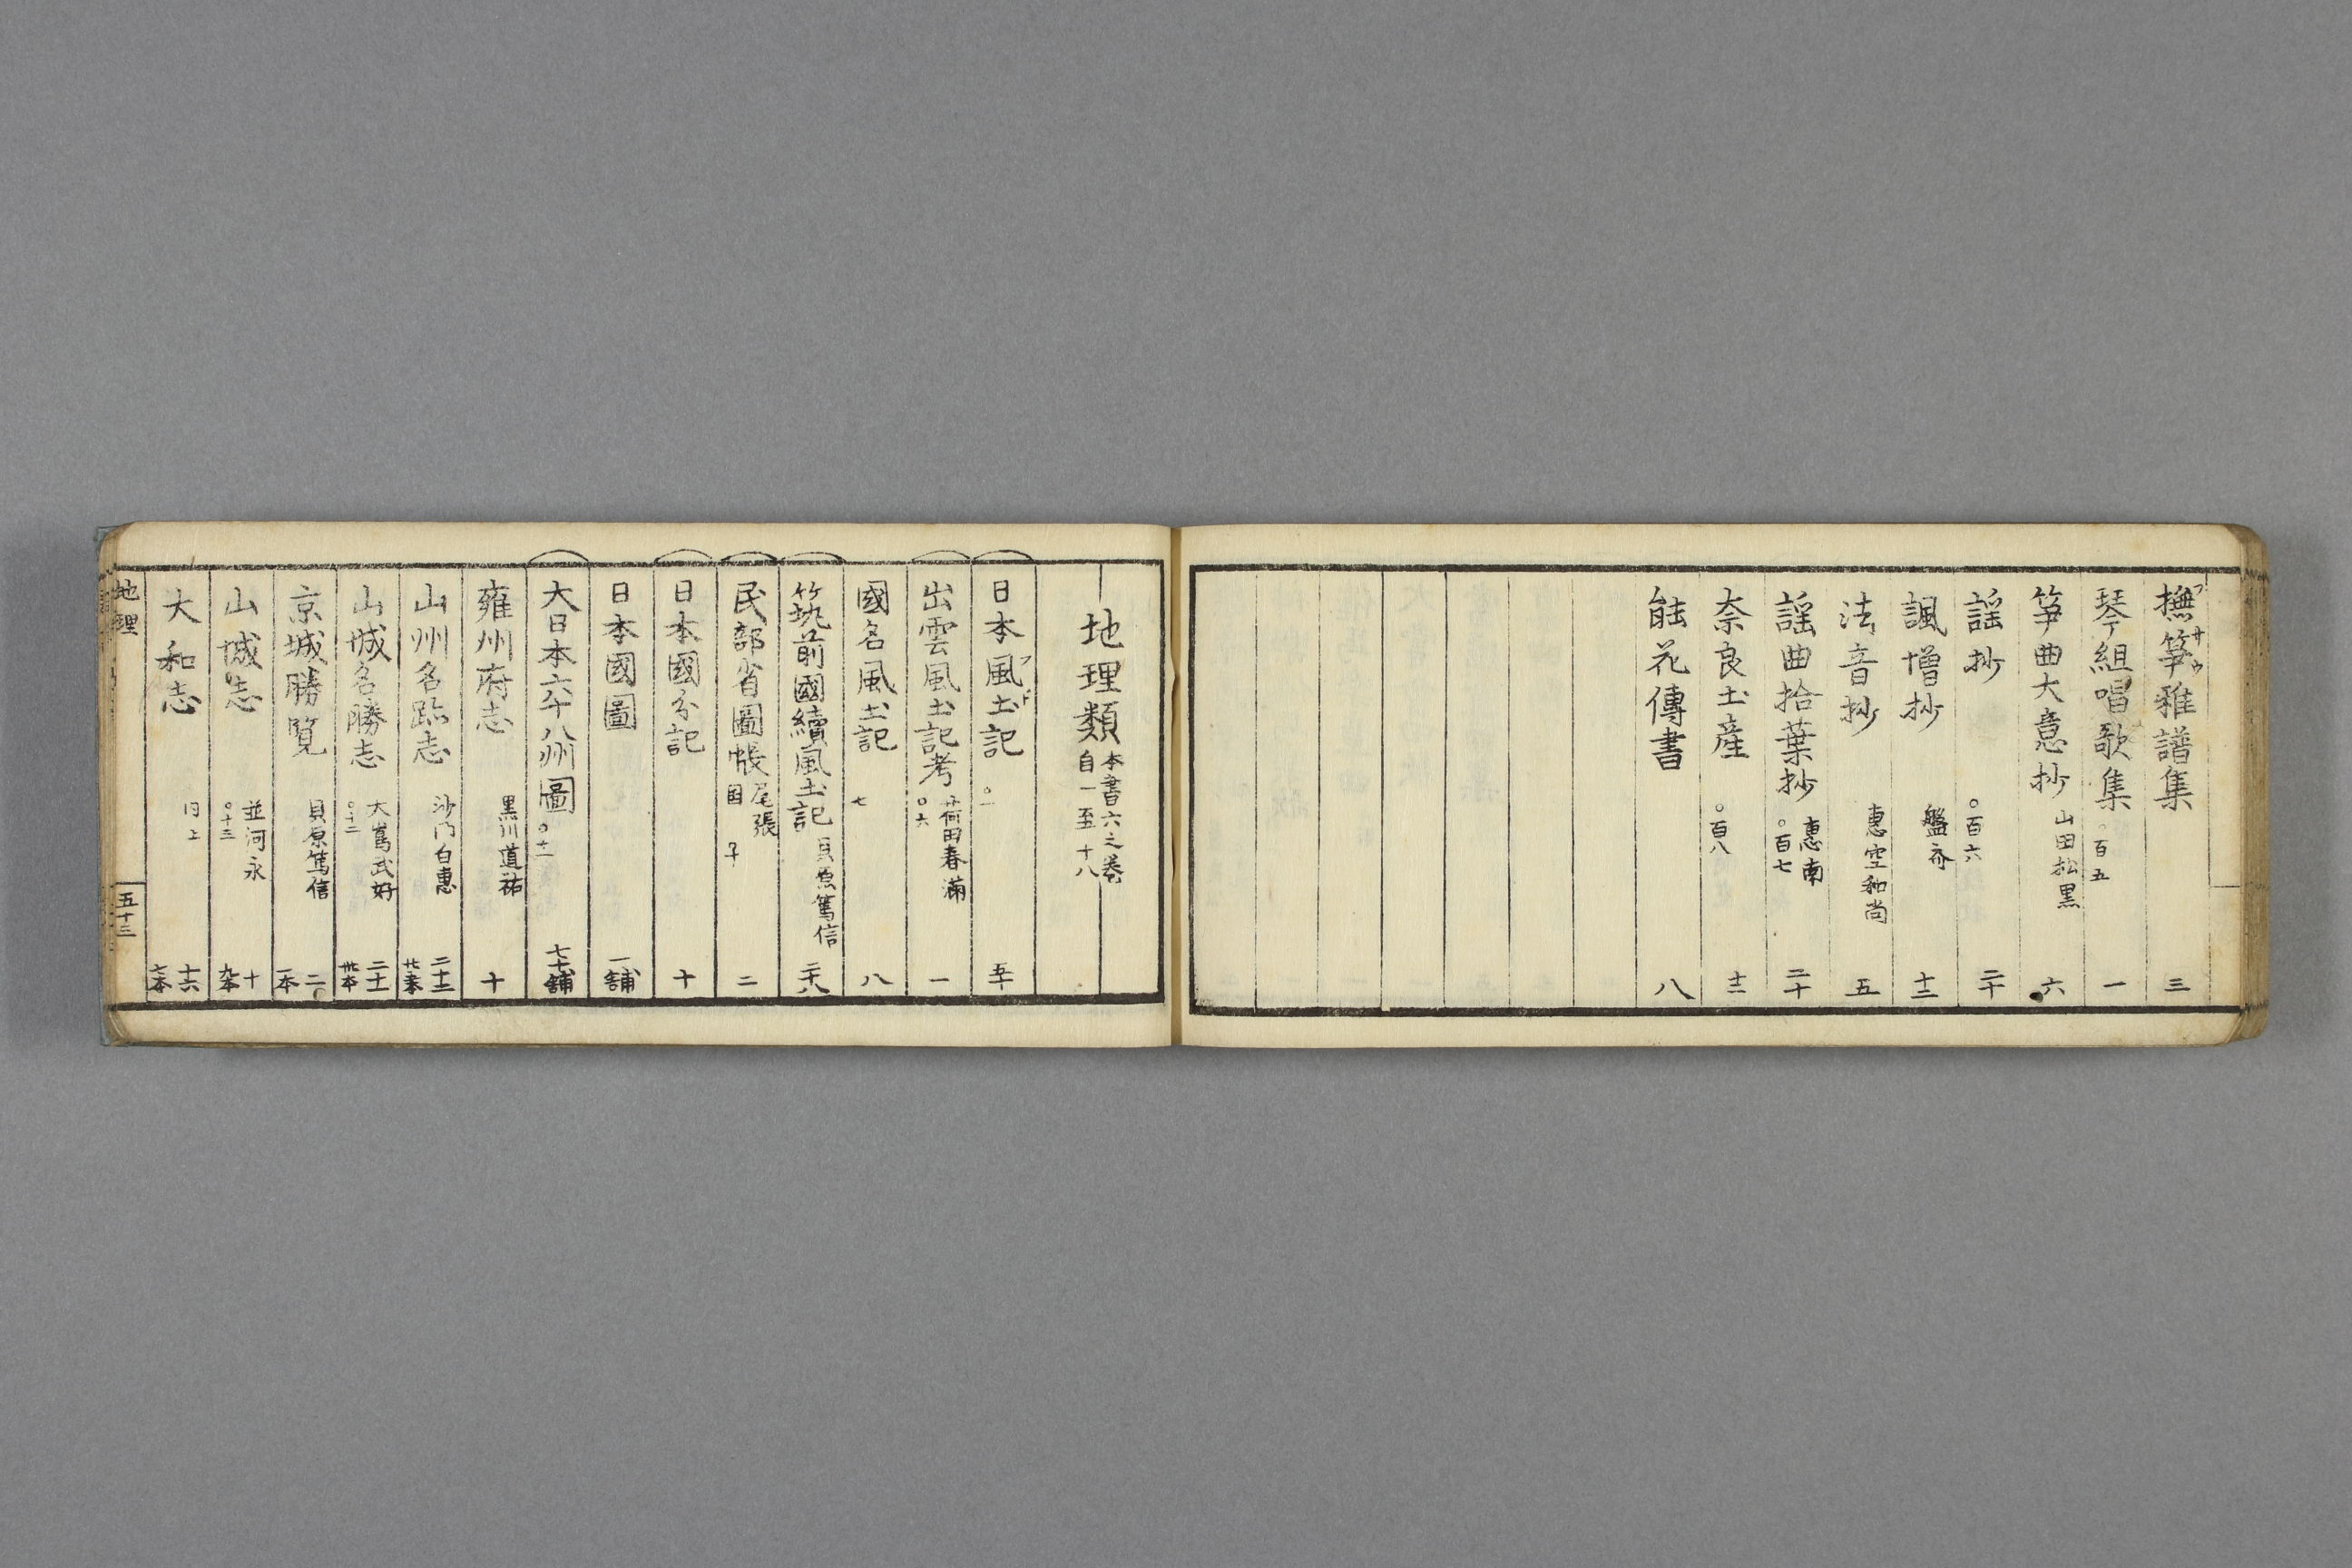 撫箏雅譜集 三
琴組唱歌集 ○百五 一
箏曲大意抄 山田松黒 六
謡抄 ○百六 二十
諷増抄 盤斎 十二
法音抄 恵空和尚 五
謡曲拾葉抄 恵南 ○百七 二十
奈良土産 ○百八 十二
能花傳書 八
地理類 本書六之巻 自一至十八
日本風土記 ○一 五十
出雲風土記考 荷田春滿 ○六 一
國名風土記 七 八
筑前國續風土記 貝原篤信 二十八
民部省圖帳 尾張 国 二
日本國分記 十
日本國圖 一舗
大日本六十八州圖 ○十一 七十舗
雍州府志 黒川道祐 十
山州名跡志 沙門白惠 二十二
山城名勝志 大嶌武好 ○十二 二十一
京城勝覧 貝原篤信 二 一本
山城志 並河永 ○十三 十
大和志 同上 十六
地理
五十三